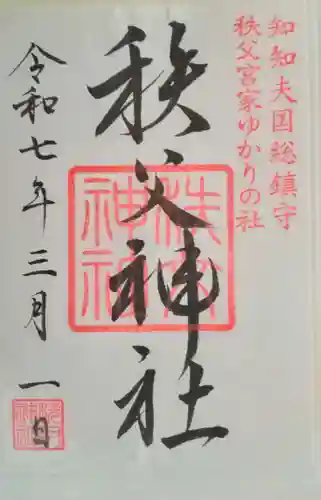 知知夫国総鎮守
秩父宮家ゆかりの社
秩父神社
令和七年三月一日